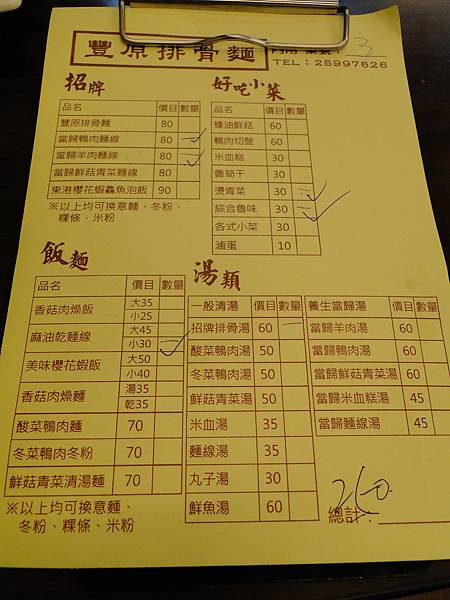 豐原排骨麵
內用 桌號: 3
TEL:25997626
招牌
品名 價目 數量
豐原排骨麵 80
當歸鴨肉麵線 80
當歸羊肉麵線 80
當歸鮮菇青菜麵線 80
東港櫻花蝦鱻魚泡飯 90
※以上均可換意麵、冬粉、
粿條、米粉
好吃小菜
品名 價目 數量
蠔油鮮菇 60
鴨肉切盤 60
米血糕 30
魯筍干 30
燙青菜 30
綜合魯味 30
各式小菜 30
滷蛋 10
飯麵
品名 價目 數量
香菇肉燥飯 大35 小25
麻油乾麵線 大45 小30
美味櫻花蝦飯 大50 小40
香菇肉燥麵 湯35 乾35
酸菜鴨肉麵 70
冬菜鴨肉冬粉 70
鮮菇青菜清湯麵 70
※以上均可換意麵、
冬粉、粿條、米粉
湯類
一般清湯 價目 數量
招牌排骨湯 60
酸菜鴨肉湯 50
冬菜鴨肉湯 50
鮮菇青菜湯 50
米血湯 35
麵線湯 35
丸子湯 30
鮮魚湯 60
養生當歸湯 價目 數量
當歸羊肉湯 60
當歸鴨肉湯 60
當歸鮮菇青菜湯 60
當歸米血糕湯 45
當歸麵線湯 45
260
總計: